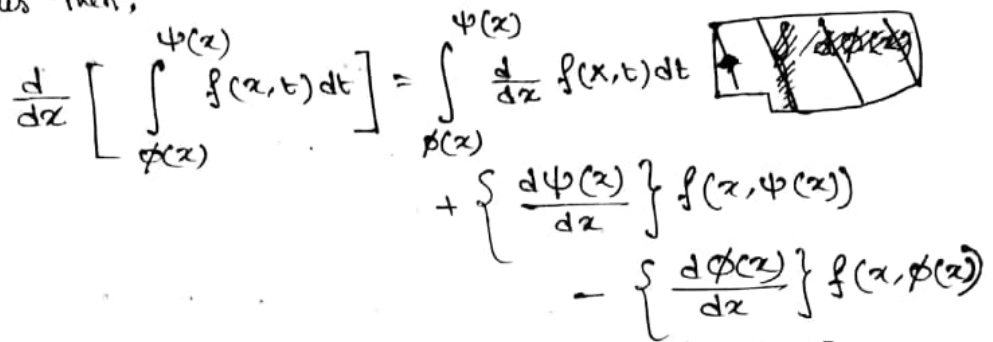 then,
d/dx [ ∫_{φ(x)}^{ψ(x)} f(x,t) dt ] = ∫_{φ(x)}^{ψ(x)} d/dx f(x,t) dt
+ { dψ(x)/dx } f(x, ψ(x))
- { dφ(x)/dx } f(x, φ(x))